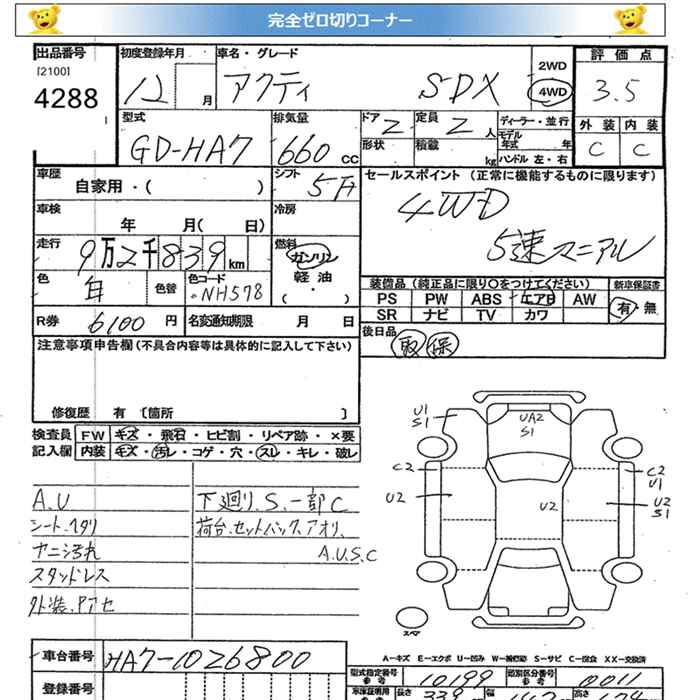 完全ゼロ切りコーナー
出品番号 初度登録年月 車名・グレード 評価点
[2100]
4288 12 月 アクティ SDX 2WD 4WD 3.5
外装 内装
C C
型式 GD-HA7 排気量 660 cc ドア 2 定員 2 人 ディーラー・並行
形状 積載 kg モデル年式 年
ハンドル 左・右
車歴 自家用・( ) シフト 5F セールスポイント (正常に機能するものに限ります)
4WD
5速マニアル
車検 年 月( 日) 冷房
走行 9万2千839km 燃料 ガソリン
軽油・
( )
色 白 色替 色コード NH578
装備品 (純正品に限り○をつけてください) 新車保証書
PS PW ABS エアB AW 有・無
SR ナビ TV カワ
R券 6100 円 名変通知期限 月 日
後日品 取 保
注意事項申告欄 (不具合内容等は具体的に記入して下さい)
修復歴 有 〔箇所 〕
検査員記入欄 FW キズ・飛石・ヒビ割・リペア跡・×要
内装 キズ・汚レ・コゲ・穴・スレ・キレ・破レ
A.U 下廻り.S.一部C
シート.ヘタリ 荷台.セットバック.アオリ.
ヤニ汚れ A.U.S.C
スタッドレス
外装.Pアセ
U1
S1
UA2
S1
C2
U2
U2
C2
U1
U2
S1
スペア
A-キズ E-エクボ U-凹み W-補修跡 S-サビ C-腐食 XX-交換済
車台番号 HA7-1026800
型式指定番号 参考 10199 類別区分番号 参考 0011
登録番号 長さ 幅 高さ